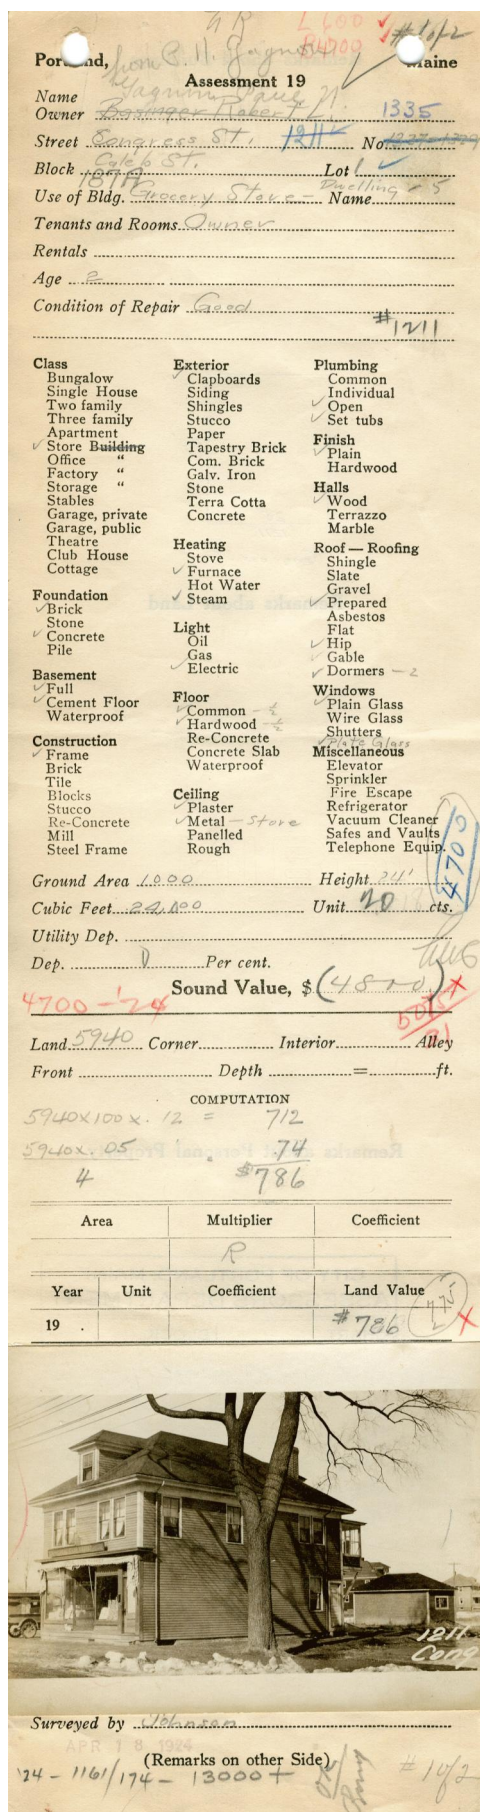 L 600
B 4700
#1 of 2
from C. H. Gagnon
Portland, Maine
Assessment 19
Name
Owner Bosinger Robert 1335
Street Congress St. 1211 No. 1327-1329
Caleb St.
Block 187A Lot 1
Dwelling - 5
Use of Bldg. Grocery Store - Name
Tenants and Rooms Owner
Rentals
Age 2
Condition of Repair Good
#1211
Class
Bungalow
Single House
Two family
Three family
Apartment
✓ Store Building
Office "
Factory "
Storage "
Stables
Garage, private
Garage, public
Theatre
Club House
Cottage
Foundation
✓ Brick
Stone
✓ Concrete
Pile
Basement
✓ Full
✓ Cement Floor
Waterproof
Construction
✓ Frame
Brick
Tile
Blocks
Stucco
Re-Concrete
Mill
Steel Frame
Exterior
✓ Clapboards
Siding
Shingles
Stucco
Paper
Tapestry Brick
Com. Brick
Galv. Iron
Stone
Terra Cotta
Concrete
Heating
Stove
✓ Furnace
Hot Water
✓ Steam
Light
Oil
Gas
✓ Electric
Floor
✓ Common - ½
✓ Hardwood - ½
Re-Concrete
Concrete Slab
Waterproof
Ceiling
✓ Plaster
✓ Metal - Store
Panelled
Rough
Plumbing
Common
Individual
✓ Open
✓ Set tubs
Finish
✓ Plain
Hardwood
Halls
✓ Wood
Terrazzo
Marble
Roof — Roofing
Shingle
Slate
Gravel
✓ Prepared
Asbestos
Flat
✓ Hip
✓ Gable
✓ Dormers - 2
Windows
✓ Plain Glass
Wire Glass
Shutters
✓ Plate Glass
Miscellaneous
Elevator
Sprinkler
Fire Escape
Refrigerator
Vacuum Cleaner
Safes and Vaults
Telephone Equip.
4700
Ground Area 1000 Height 24'
Cubic Feet 24,000 Unit 20 cts.
Utility Dep.
Dep. 0 Per cent.
Sound Value, $ (4800) X
4700 - '24
5075
Land 5940 Corner Interior Alley
Front Depth = ft.
COMPUTATION
5940 x 100 x .12 = 712
5940 x .05 . 74
4 $786
Area Multiplier Coefficient
R
Year Unit Coefficient Land Value
775
19 . $786 X
1211
Cong
Surveyed by Johnson
APR 18 1924
(Remarks on other Side)
'24 - 1161/174 - 13000+
#1 of 2